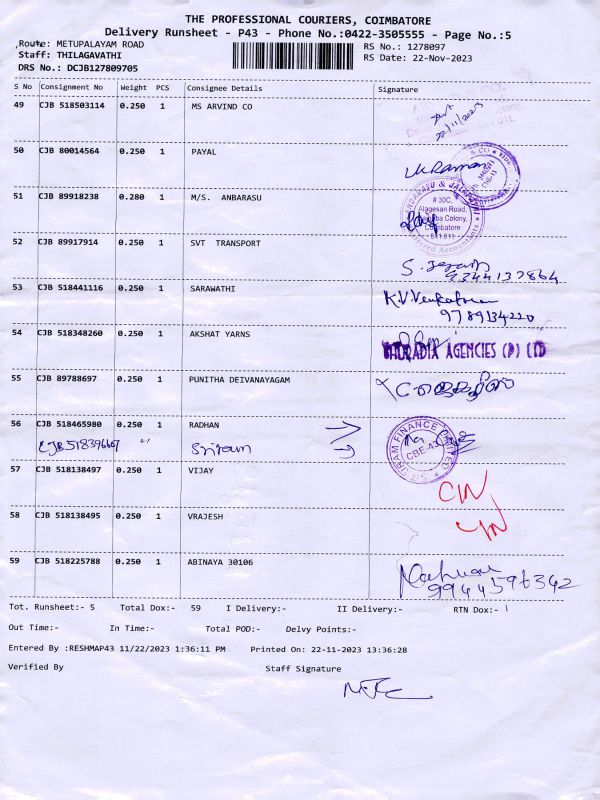 THE PROFESSIONAL COURIERS, COIMBATORE
Delivery Runsheet - P43 - Phone No.:0422-3505555 - Page No.:5
Route: METUPALAYAM ROAD
RS No.: 1278097
Staff: THILAGAVATHI
RS Date: 22-Nov-2023
DRS No.: DCJB127809705
S No Consignment No Weight PCS Consignee Details Signature
49 CJB 518503114 0.250 1 MS ARVIND CO
22/11/2023
50 CJB 80014564 0.250 1 PAYAL
51 CJB 89918238 0.280 1 M/S. ANBARASU
# 30C,
Alagesan Road,
Coimbatore
641 011
52 CJB 89917914 0.250 1 SVT TRANSPORT
53 CJB 518441116 0.250 1 SARAWATHI
9789134220
54 CJB 518348260 0.250 1 AKSHAT YARNS
AGENCIES (P) LTD
55 CJB 89788697 0.250 1 PUNITHA DEIVANAYAGAM
56 CJB 518465980 0.250 1 RADHAN
Sriram
FINANCE LIMITED
CBE-43
57 CJB 518138497 0.250 1 VIJAY
58 CJB 518138495 0.250 1 VRAJESH
59 CJB 518225788 0.250 1 ABINAYA 30106
9944596342
Tot. Runsheet:- 5 Total Dox:- 59 I Delivery:- II Delivery:- RTN Dox:- 1
Out Time:- In Time:- Total POD:- Delvy Points:-
Entered By :RESHMAP43 11/22/2023 1:36:11 PM Printed On: 22-11-2023 13:36:28
Verified By Staff Signature